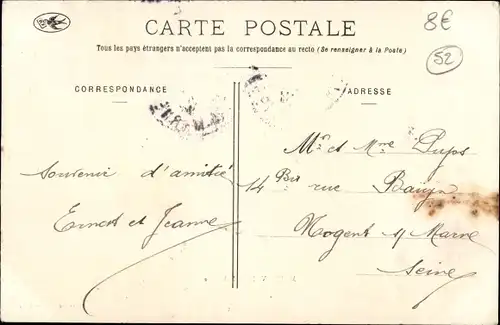 CARTE POSTALE
8€
Tous les pays étrangers n'acceptent pas la correspondance au recto (Se renseigner à la Poste)
52
CORRESPONDANCE
ADRESSE
Souvenir d'amitié
Ernest et Jeanne
Mr et Mme Pups
14 Bis rue
Nogent s/ Marne
Seine